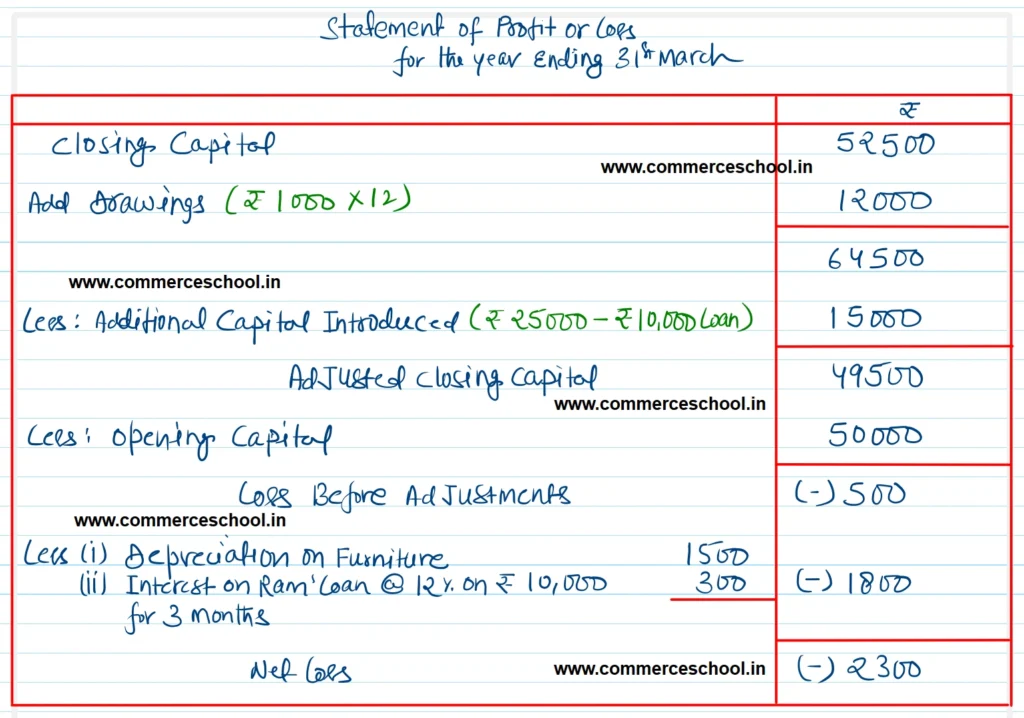 Statement of Profit or Loss
for the year Ending 31st March
₹
Closing Capital 52500
www.commerceschool.in
Add Drawings (₹ 1000 × 12) 12000
64500
www.commerceschool.in
Less: Additional Capital Introduced (₹ 25000 – ₹ 10,000 Loan) 15000
Adjusted Closing Capital 49500
www.commerceschool.in
Less: Opening Capital 50000
Loss Before Adjustments (-) 500
www.commerceschool.in
Less (i) Depreciation on Furniture 1500
(ii) Interest on Ram' Loan @ 12 %. on ₹ 10,000 300 (-) 1800
for 3 months
Net Loss www.commerceschool.in (-) 2300